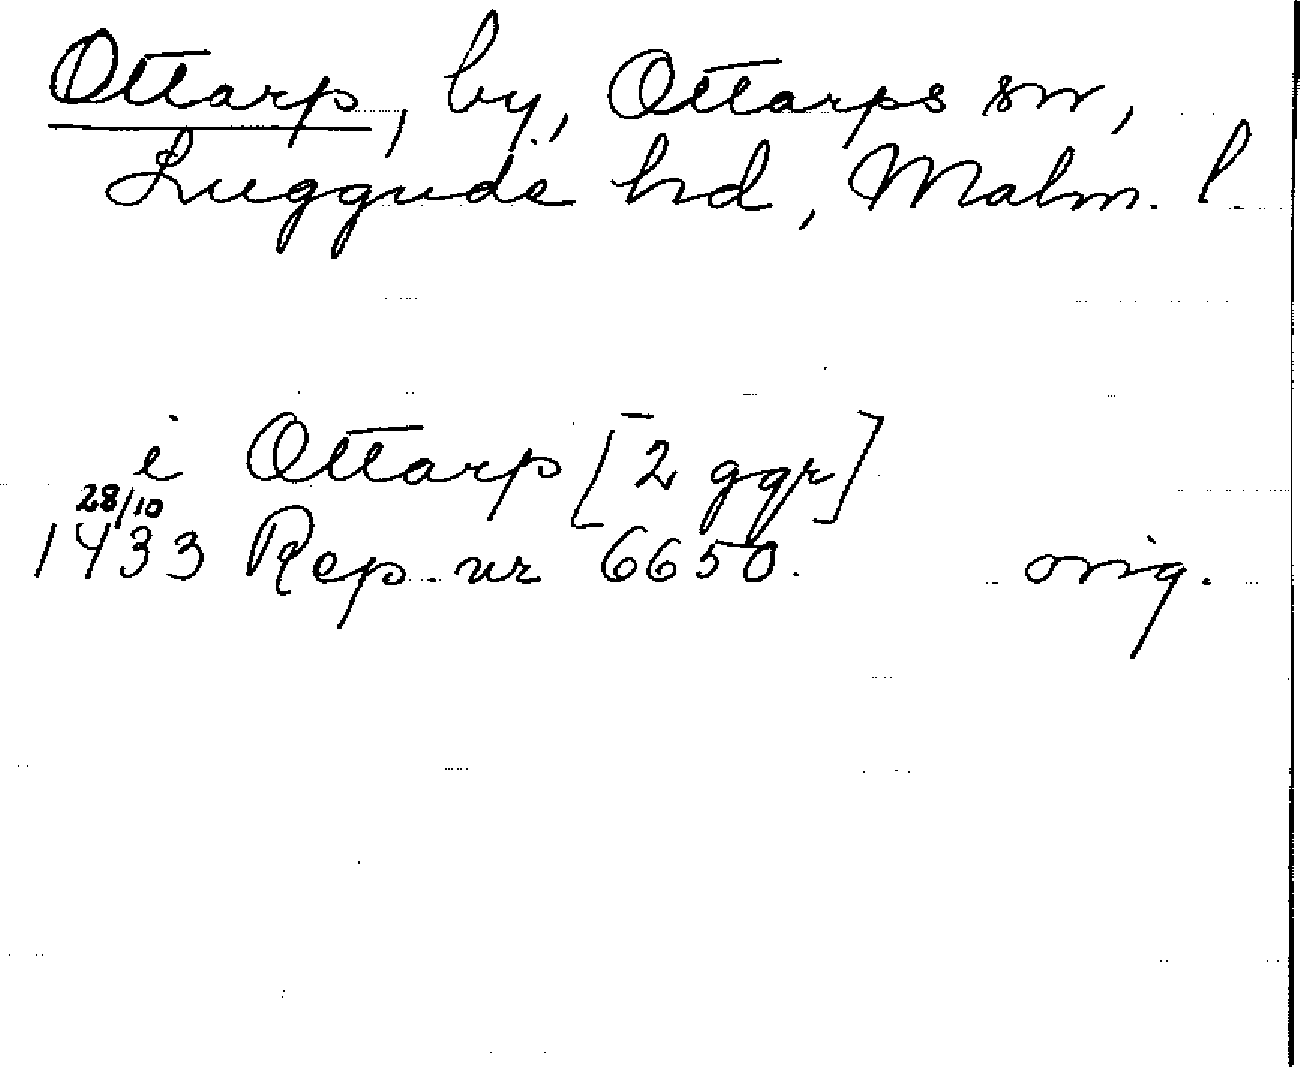 Ottarp, by, Ottarps sn,
Luggude hd, Malm. l.
i Ottarp [2 ggr]
28/10
1433 Rep. nr 6650. orig.